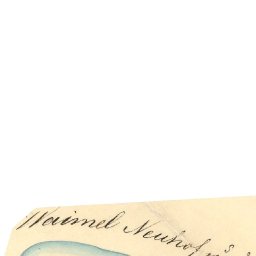 Waimel Neuhof